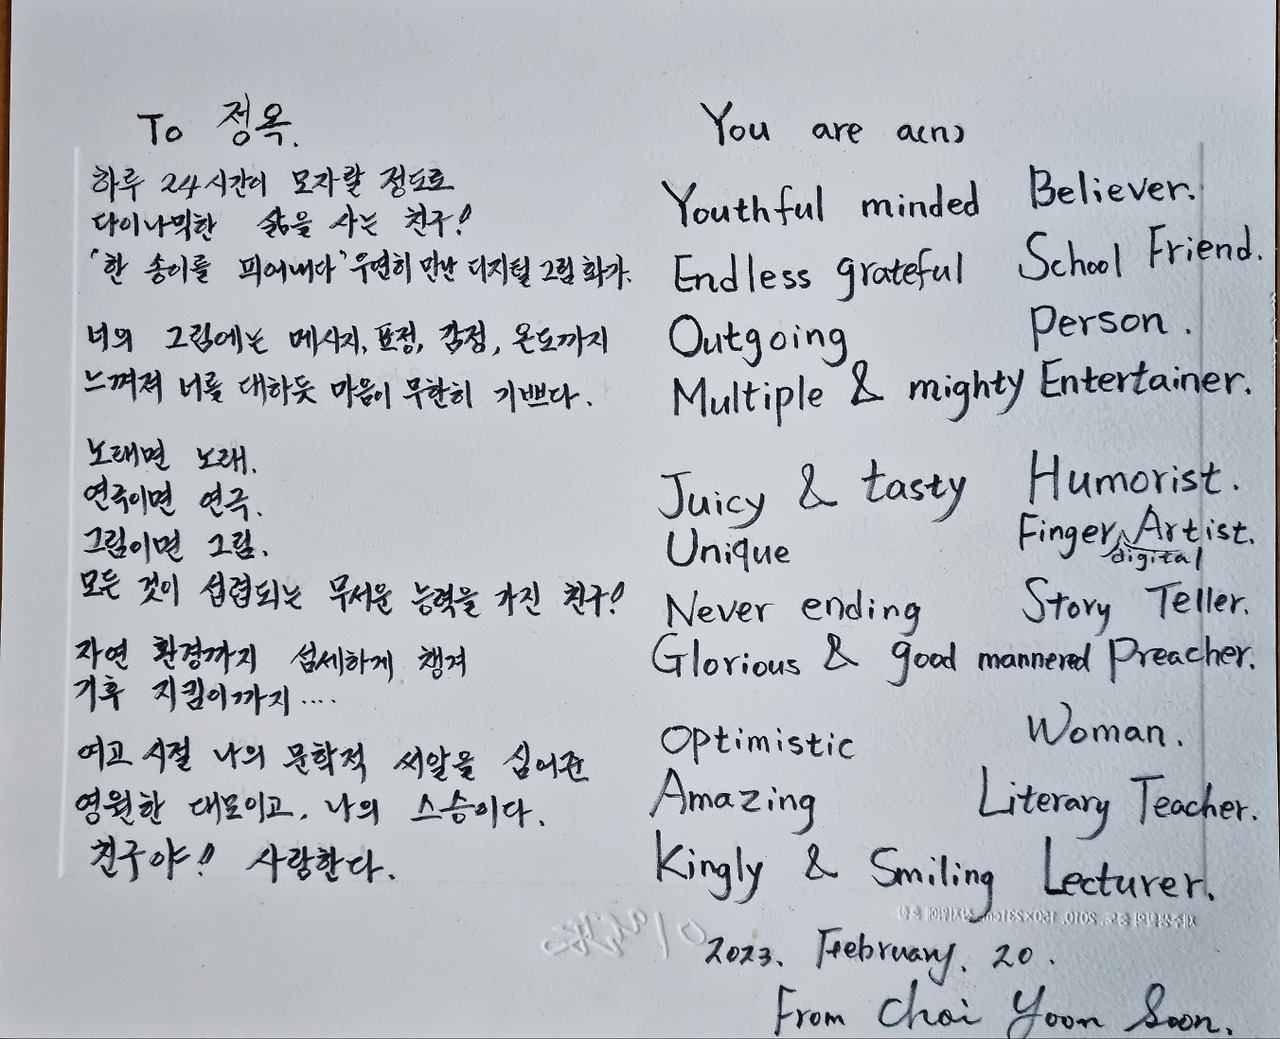 To 정옥.
하루 24시간이 모자랄 정도로
다이나믹한 삶을 사는 친구!
'한 송이를 피어내다' 우연히 만난 디지털 그림 화가.
너의 그림에는 메시지, 표정, 감정, 온도까지
느껴져 너를 대하듯 마음이 무한히 기쁘다.
노래면 노래.
연극이면 연극.
그림이면 그림.
모든 것이 섭렵되는 무서운 능력을 가진 친구!
자연 환경까지 섬세하게 챙겨
기후 지킴이까지....
여고 시절 나의 문학적 씨알을 심어준
영원한 대모이고, 나의 스승이다.
친구야! 사랑한다.
You are a(n)
Youthful minded Believer.
Endless grateful School Friend.
Outgoing person.
Multiple & mighty Entertainer.
Juicy & tasty Humorist.
Unique Finger digital Artist.
Never ending Story Teller.
Glorious & good mannered Preacher.
Optimistic Woman.
Amazing Literary Teacher.
Kingly & Smiling Lecturer.
2023. February. 20.
From Choi Yoon Soon.